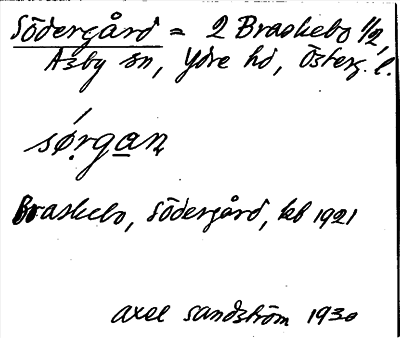 Södergård = 2 Braskebo 1/2,
Asby sn, Ydre hd, Österg. l.
sǿrgan
Braskebo, Södergård, kb 1921
Axel Sandström 1930